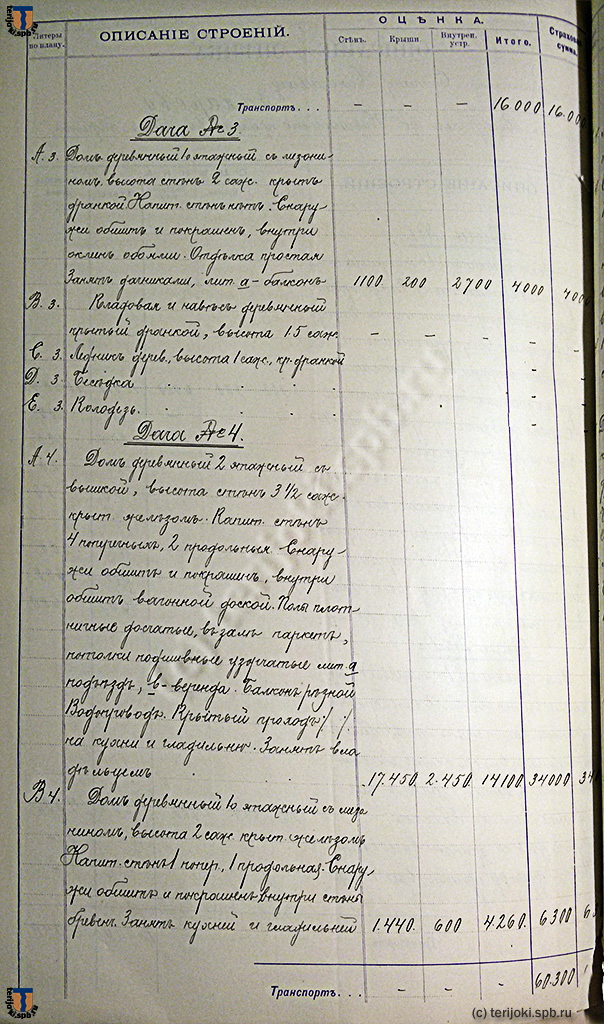 terijoki.spb.ru
Литеры по плану.
ОПИСАНІЕ СТРОЕНІЙ.
ОЦѢНКА.
Стѣнъ.
Крыши.
Внутрен. устр.
Итого.
Страхова сумма.
Транспортъ . . . – – – 16000 16.00
Дача № 3
А. 3. Домъ деревянный 1о этажный съ мезони-
номъ высота стѣнъ 2 саж. крытъ
дранкой Капит. стѣнъ нѣтъ. Снару-
жи обшитъ и покрашен, внутри
оклеин обоями. Отдѣлка простая
Занятъ дачниками, лит. а – балконъ 1100 200 2700 4000 4000
В. 3. Кладовая и навѣсъ деревянный
крытый дранкой, высота 1.5 саж. – – – –
С. 3. Ледникъ дерев., высота 1 саж., кр. дранкой –
D. 3. Бесѣдка . . . . –
Е. 3. Колодезь . . . . –
Дача № 4.
А 4. Домъ деревянный 2 этажный съ
вышкой, высота стѣнъ 3 1/2 саж.
крыт желѣзомъ. Капит. стѣнъ
4 поперечныхъ, 2 продольныя Снару-
жи обшитъ и покрашенъ, внутри
обшитъ вагонной доской. Полы плот-
ничные досчатые, въ залѣ паркетъ,
потолки подшивные узорчатые лит. а
подъѣздъ, в – веранда. Балконъ рѣзной
Водопроводъ. Крытый проходъ / /
на кухни и гладильню. Занятъ вла-
дѣльцемъ . . 17.450 2.450 14100 34000 34
В 4. Домъ деревянный 1о этажный съ мезо
ниномъ, высота 2 саж. крыт. желѣзомъ
Капит. стѣнъ 1 попер., 1 продольная. Снару-
жи обшитъ и покрашенъ внутри стѣны
бревен. Занятъ кухней и гладильней 1.440. 600 4.260. 6300 6.
Транспортъ. . . – – – 60.300
terijoki.spb.ru
terijoki.spb.ru
(c) terijoki.spb.ru